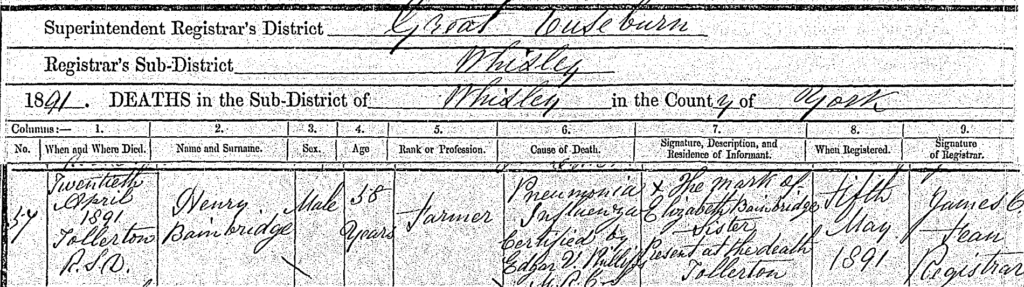 Superintendent Registrar's District Great Ouseburn
Registrar's Sub-District Whixley
1891. DEATHS in the Sub-District of Whixley in the County of York
Columns:— 1. 2. 3. 4. 5. 6. 7. 8. 9.
No. When and Where Died. Name and Surname. Sex. Age Rank or Profession. Cause of Death. Signature, Description, and Residence of Informant. When Registered. Signature of Registrar.
57
Twentieth
April
1891
Tollerton
R.S.D.
Henry
Bainbridge
Male
58
Years
Farmer
Pneumonia
Influenza
Certified by
Edgar V. Phillips
M.R.C.S.
X The mark of
Elizabeth Bainbridge
Sister
Present at the death
Tollerton
Fifth
May
1891
James C.
Registrar